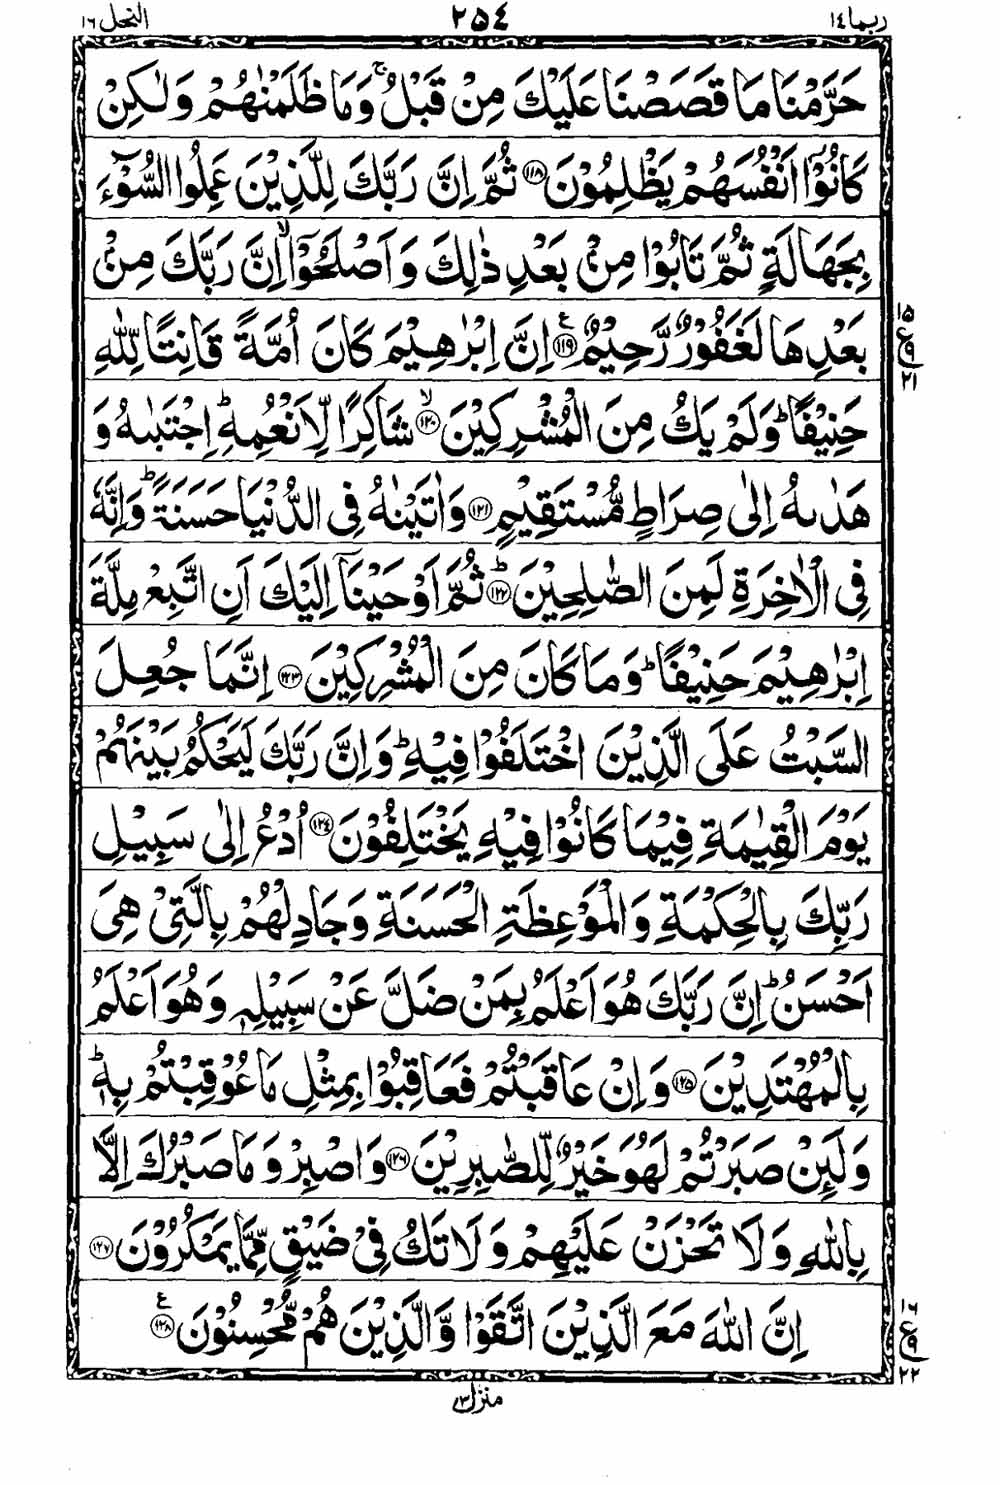 ربما ١٤ ٢٥٤ النحل ١٦
حَرَّمْنَا مَا قَصَصْنَا عَلَيْكَ مِنْ قَبْلُ ۚ وَمَا ظَلَمْنٰهُمْ وَلٰكِنْ
كَانُوْۤا اَنْفُسَهُمْ يَظْلِمُوْنَ ﴿١١٨﴾ ثُمَّ اِنَّ رَبَّكَ لِلَّذِيْنَ عَمِلُوا السُّوْٓءَ
بِجَهَالَةٍ ثُمَّ تَابُوْا مِنْۢ بَعْدِ ذٰلِكَ وَاَصْلَحُوْۤا ۙ اِنَّ رَبَّكَ مِنْۢ
بَعْدِهَا لَغَفُوْرٌ رَّحِيْمٌ ﴿١١٩﴾ ع اِنَّ اِبْرٰهِيْمَ كَانَ اُمَّةً قَانِتًا لِّلّٰهِ
١٥ ع ٩ ٢١
حَنِيْفًا ؕ وَلَمْ يَكُ مِنَ الْمُشْرِكِيْنَ ﴿١٢٠﴾ ۙ شَاكِرًا لِّاَنْعُمِهٖ ؕ اِجْتَبٰىهُ وَ
هَدٰىهُ اِلٰى صِرَاطٍ مُّسْتَقِيْمٍ ﴿١٢١﴾ وَاٰتَيْنٰهُ فِى الدُّنْيَا حَسَنَةً ؕ وَاِنَّهٗ
فِى الْاٰخِرَةِ لَمِنَ الصّٰلِحِيْنَ ﴿١٢٢﴾ ؕ ثُمَّ اَوْحَيْنَاۤ اِلَيْكَ اَنِ اتَّبِعْ مِلَّةَ
اِبْرٰهِيْمَ حَنِيْفًا ؕ وَمَا كَانَ مِنَ الْمُشْرِكِيْنَ ﴿١٢٣﴾ اِنَّمَا جُعِلَ
السَّبْتُ عَلَى الَّذِيْنَ اخْتَلَفُوْا فِيْهِ ؕ وَاِنَّ رَبَّكَ لَيَحْكُمُ بَيْنَهُمْ
يَوْمَ الْقِيٰمَةِ فِيْمَا كَانُوْا فِيْهِ يَخْتَلِفُوْنَ ﴿١٢٤﴾ اُدْعُ اِلٰى سَبِيْلِ
رَبِّكَ بِالْحِكْمَةِ وَالْمَوْعِظَةِ الْحَسَنَةِ وَجَادِلْهُمْ بِالَّتِىْ هِىَ
اَحْسَنُ ؕ اِنَّ رَبَّكَ هُوَ اَعْلَمُ بِمَنْ ضَلَّ عَنْ سَبِيْلِهٖ وَهُوَ اَعْلَمُ
بِالْمُهْتَدِيْنَ ﴿١٢٥﴾ وَاِنْ عَاقَبْتُمْ فَعَاقِبُوْا بِمِثْلِ مَا عُوْقِبْتُمْ بِهٖ ؕ
وَلَئِنْ صَبَرْتُمْ لَهُوَ خَيْرٌ لِّلصّٰبِرِيْنَ ﴿١٢٦﴾ وَاصْبِرْ وَمَا صَبْرُكَ اِلَّا
بِاللّٰهِ وَلَا تَحْزَنْ عَلَيْهِمْ وَلَا تَكُ فِىْ ضَيْقٍ مِّمَّا يَمْكُرُوْنَ ﴿١٢٧﴾
اِنَّ اللّٰهَ مَعَ الَّذِيْنَ اتَّقَوْا وَّالَّذِيْنَ هُمْ مُّحْسِنُوْنَ ﴿١٢٨﴾ ع
١٦ ع ٩ ٢٢
منزل ٣